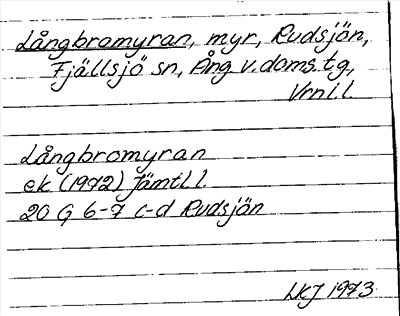 Långbromyran, myr, Rudsjön,
Fjällsjö sn, Ång v. doms. tg,
Vrnl l.
Långbromyran
ek (1972) Jämtl l.
20 G 6-7 c-d Rudsjön
LKJ 1973